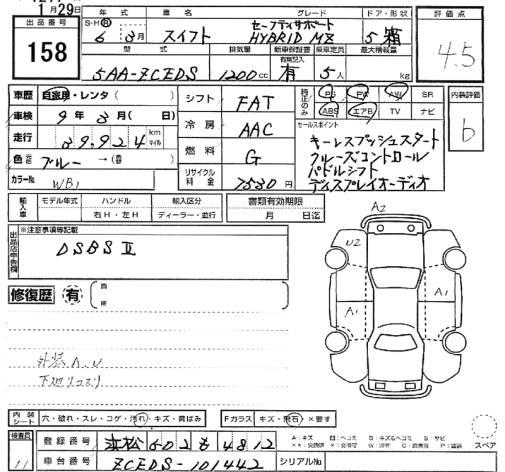 1月29日
出品番号 158
年式 S・H・R 6年3月
車名 スイフト
グレード セーフティサポート HYBRID MZ
ドア・形状 5 箱
評価点 4.5
型式 5AA-ZCEDS
排気量 1200cc
新車保証書 有無記入 有
乗車定員 5人
最大積載量 kg
車歴 自家用・レンタ( )
車検 9年3月( )
走行 39,924 km マイル
色 ブルー →( )
カラーNo. WB1
シフト FAT
冷房 AAC
燃料 G
リサイクル料金 7530円
純正のみ PS PW AW SR
ABS エアB TV ナビ
内装評価 b
セールスポイント
キーレスプッシュスタート
クルーズコントロール
パドルシフト
ディスプレイオーディオ
輸入車 モデル年式 ハンドル 右H・左H 輸入区分 ディーラー・並行
書類有効期限 月 日迄
出品店申告欄
※注意事項等記載
DSBS II
修復歴 有
箇所
A2
U2
A1
A1
外装A.U
下廻りコスリ
内装シート 穴・破れ・スレ・コゲ・汚れ・キズ・黄ばみ
Fガラス キズ・飛石・×要す
スペア
検査員 11
登録番号 浜松 602 も 4812
車台番号 ZCEDS-101442
シリアルNo.
A:キズ U:ヘコミ B:キズ&ヘコミ S:サビ